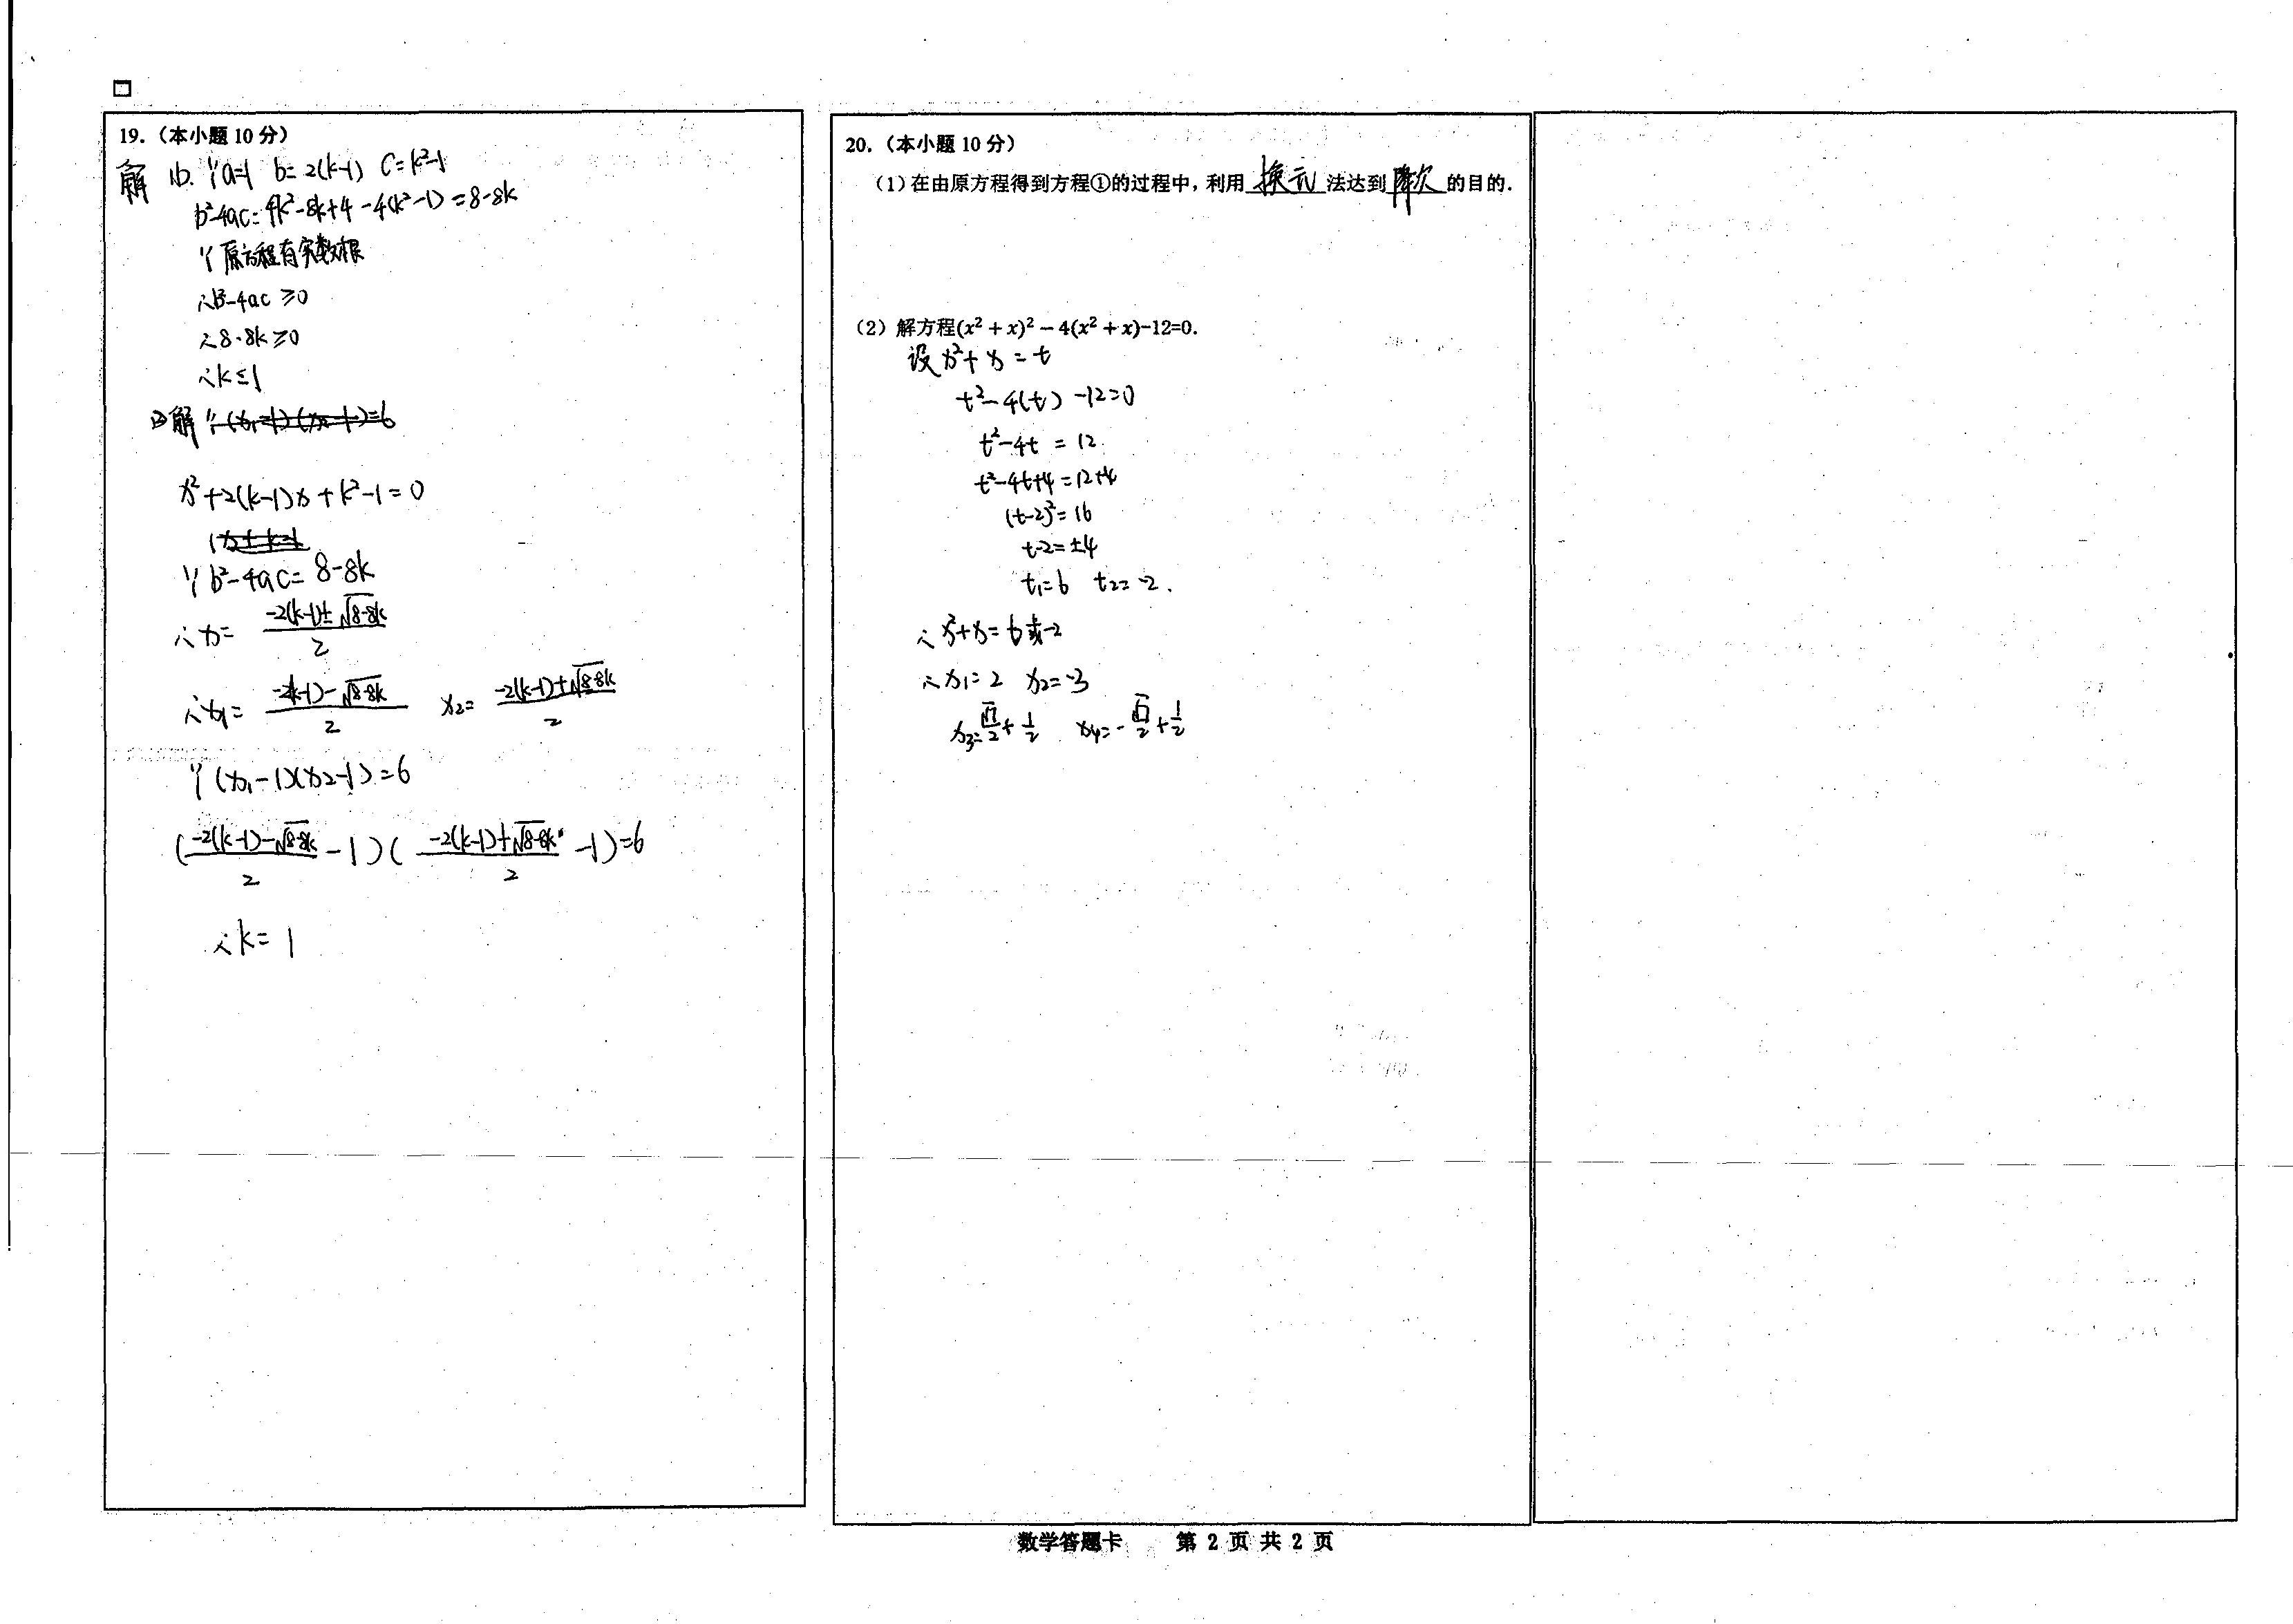 19.（本小题 10 分）
解 1). ∵a=1 b=2(k-1) C=k²-1
b²-4ac=4k²-8k+4-4(k²-1)=8-8k
∵原方程有实数根
∴b²-4ac≥0
∴8-8k≥0
∴k≤1
2)解 ∵(x₁-1)(x₂-1)=6
x²+2(k-1)x+k²-1=0
∵b²-4ac=8-8k
∴x=(-2(k-1)±√(8-8k))/2
∴x₁=(-2(k-1)-√(8-8k))/2 x₂=(-2(k-1)+√(8-8k))/2
∵(x₁-1)(x₂-1)=6
((-2(k-1)-√(8-8k))/2-1)((-2(k-1)+√(8-8k))/2-1)=6
∴k=1
20.（本小题 10 分）
（1）在由原方程得到方程①的过程中，利用 换元 法达到 降次 的目的.
（2）解方程(x²+x)²-4(x²+x)-12=0.
设x²+x=t
t²-4(t)-12=0
t²-4t=12
t²-4t+4=12+4
(t-2)²=16
t-2=±4
t₁=6 t₂=-2.
∴x²+x=6或-2
∴x₁=2 x₂=-3
x₃=√7/2+1/2 x₄=-√7/2+1/2
数学答题卡 第 2 页 共 2 页